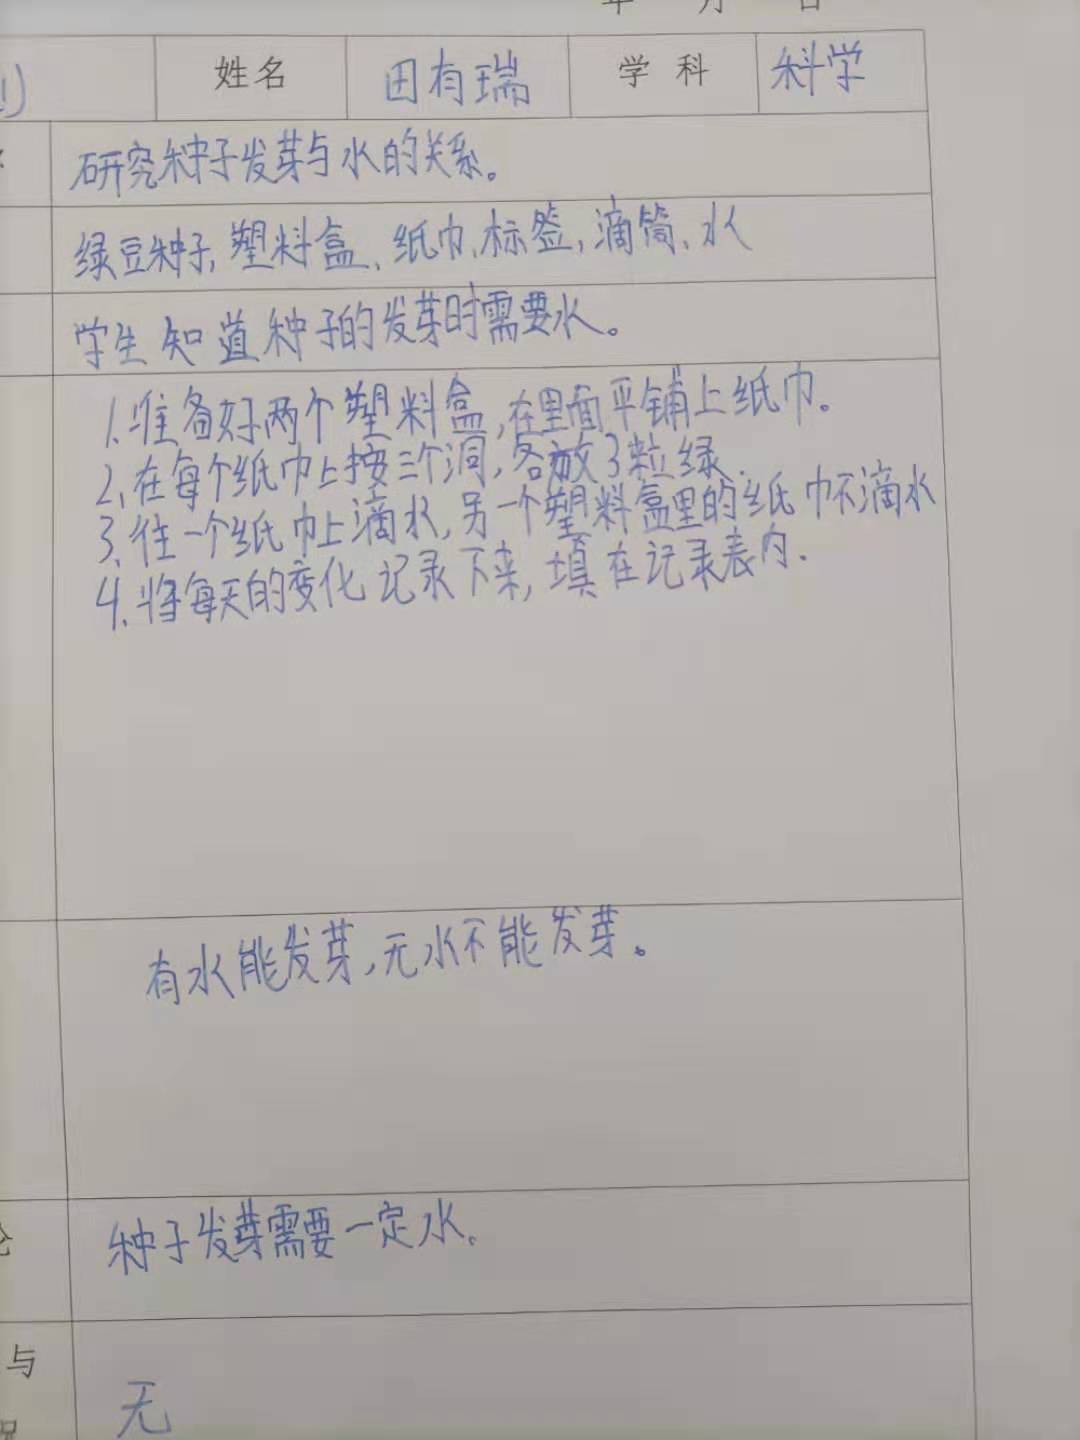 年 月 日
姓名 田有瑞 学科 科学
研究种子发芽与水的关系。
绿豆种子,塑料盒、纸巾、标签,滴筒、水
学生知道种子的发芽时需要水。
1.准备好两个塑料盒,在里面平铺上纸巾.
2.在每个纸巾上按三个洞,各放3粒绿
3.往一个纸巾上滴水,另一个塑料盒里的纸巾不滴水
4.将每天的变化记录下来,填在记录表内.
有水能发芽,无水不能发芽。
种子发芽需要一定水。
与
无